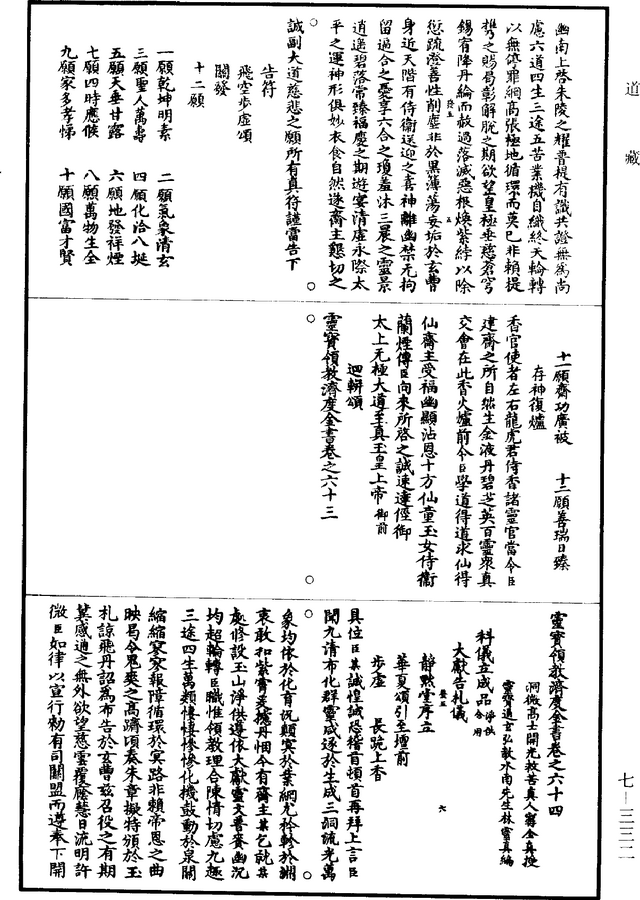 道藏
幽南上啓朱陵之耀普提有識共證無為尚
慮六道四生三途五苦業機自織終天輪轉
以無停罪網高張極地循環而莫已非賴提
攜乃賜局彰解脫之期欲望皇極垂慈蒼穹
錫宥降丹綸而赦過落滅惡根煥紫綍以除
愆疏澄善性削塵非於黑簿蕩妄垢於玄曹
身近天階有侍衛送迎之喜神離幽禁无拘
留適合之憂享六合之瓊蓋沐三晨之靈景
逍遙碧落常臻福慶之期遊宴清虛永際太
平之運神形俱妙衣食自然遂齋主懇切之
誠副大道慈悲之願所有真符謹當告下
告符
飛空步虛頌
關發
十二願
一願乾坤明素 二願氣象清玄
三願聖人萬壽 四願化洽八埏
五願天垂甘露 六願地發祥煙
七願四時應候 八願萬物生全
九願家多孝悌 十願國富才賢
十一願齋功廣被 十二願善瑞日臻
存神復爐
香官使者左右龍虎君侍香諸靈官當令臣
建齋之所自然生金液丹碧芝英百靈衆真
交會在此香火爐前令臣學道得道求仙得
仙齋主受福幽顯沾恩十方仙童玉女侍衛
蘭煙傳臣向來所啓之誠速達徑御
太上无極大道至真玉皇上帝 御前
迴軿頌
靈寶領教濟度金書卷之六十三
靈寶領教濟度金書卷之六十四
洞微高士開光救苦真人甯全真授
靈寶通玄弘教水南先生林靈真編
科儀立成品 淨供合用
大獻告札儀
靜默堂序立
華夏頌引至壇前
步虛 長跪上香
具位臣某誠惶誠恐稽首頓首再拜上言臣
聞九清布化群靈咸遂於生成三洞流光萬
象均依於化育況顛冥於業網尤矜軫於淵
衷敢和紫霄爰攄丹悃今有齋主某乞就某
處修設玉山淨供遵依大獻靈文普資幽沉
均超輪轉臣職惟領教理合陳情切慮九趣
三途四生萬類悽悽慘慘化機鼓動於泉關
縮縮寥寥報障循環於冥路非賴帝恩之曲
映曷令鬼爽之高躋頃奏朱章擬特頒於玉
札諒飛丹詔為布告於玄曹茲召役之有期
冀感通之無外欲望慈雲覆廕慧日流明許
微臣如律以宣行勑有司關盟而遵奉下開
七-三三二